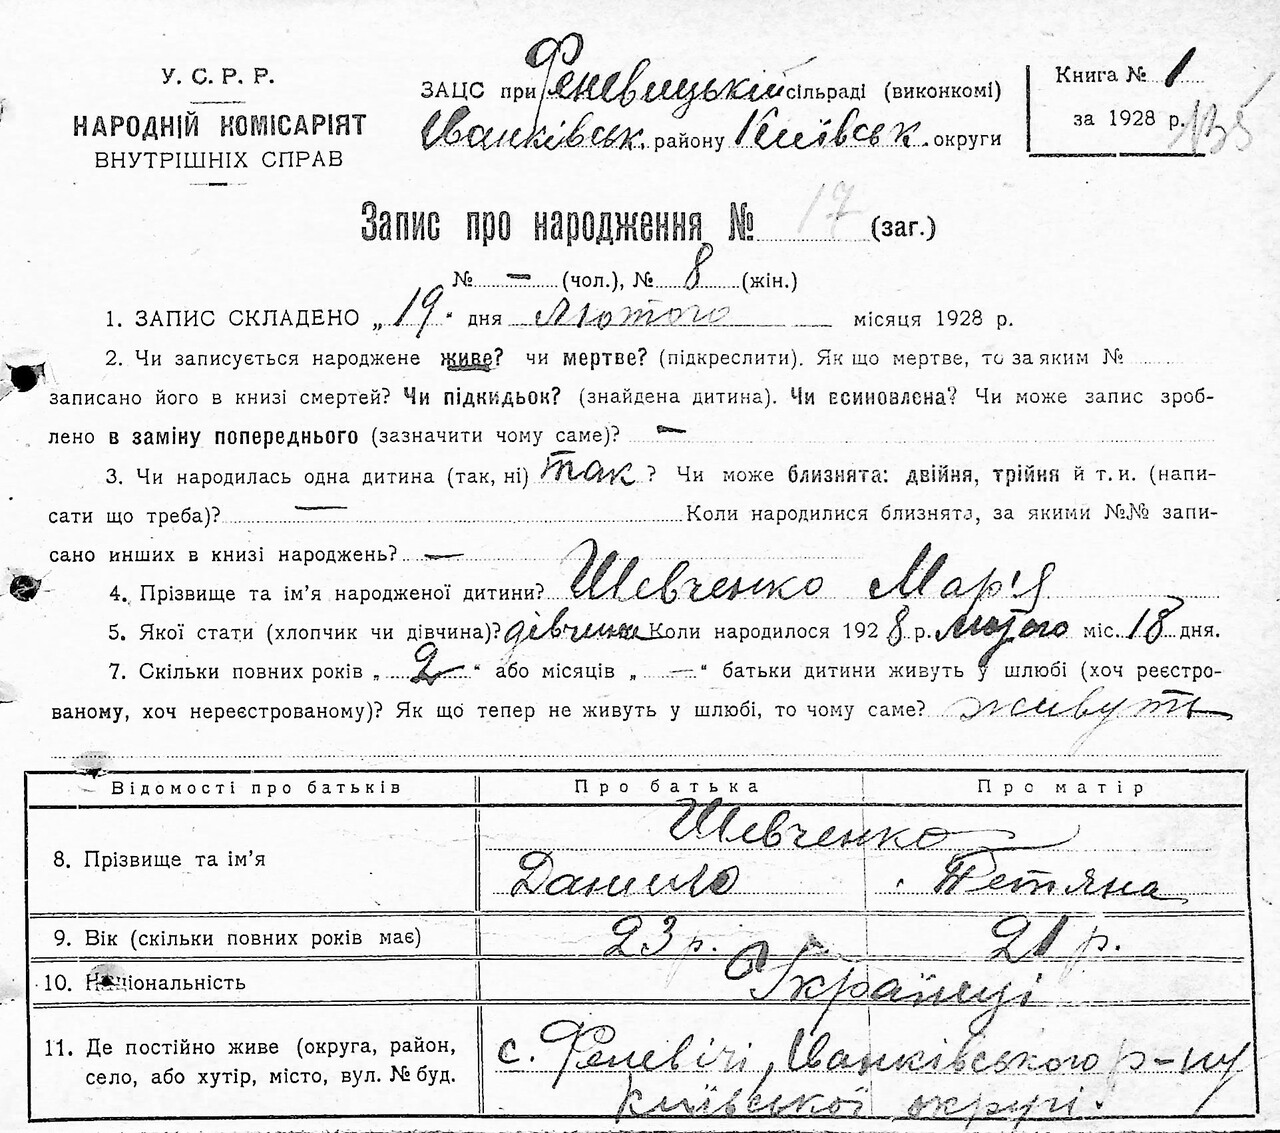 У. С. Р. Р.
НАРОДНІЙ КОМІСАРІЯТ
ВНУТРІШНІХ СПРАВ
ЗАЦС при Феневицькій сільраді (виконкомі)
Іванківськ. району Київськ. округи
Книга № 1
за 1928 р.
135
Запис про народження № 17 (заг.)
№ — (чол.), № 8 (жін.)
1. ЗАПИС СКЛАДЕНО „19" дня лютого місяця 1928 р.
2. Чи записується народжене живе? чи мертве? (підкреслити). Як що мертве, то за яким №
записано його в книзі смертей? Чи підкидьок? (знайдена дитина). Чи всиновлена? Чи може запис зроб-
лено в заміну попереднього (зазначити чому саме)? —
3. Чи народилась одна дитина (так, ні) так ? Чи може близнята: двійня, трійня й т. и. (напи-
сати що треба)? — Коли народилися близнята, за якими №№ запи-
сано инших в книзі народжень? —
4. Прізвище та ім'я народженої дитини? Шевченко Мар'я
5. Якої стати (хлопчик чи дівчина)? дівчина Коли народилося 1928 р. лютого міс. 18 дня.
7. Скільки повних років „2" або місяців „—" батьки дитини живуть у шлюбі (хоч реєстро-
ваному, хоч нереєстрованому)? Як що тепер не живуть у шлюбі, то чому саме? живуть
Відомості про батьків Про батька Про матір
8. Прізвище та ім'я Шевченко
Данило Тетяна
9. Вік (скільки повних років має) 23 р. 21 р.
10. Національність Українці
11. Де постійно живе (округа, район,
село, або хутір, місто, вул. № буд.
с. Феневічі, Іванківського р-ну
Київської округі.